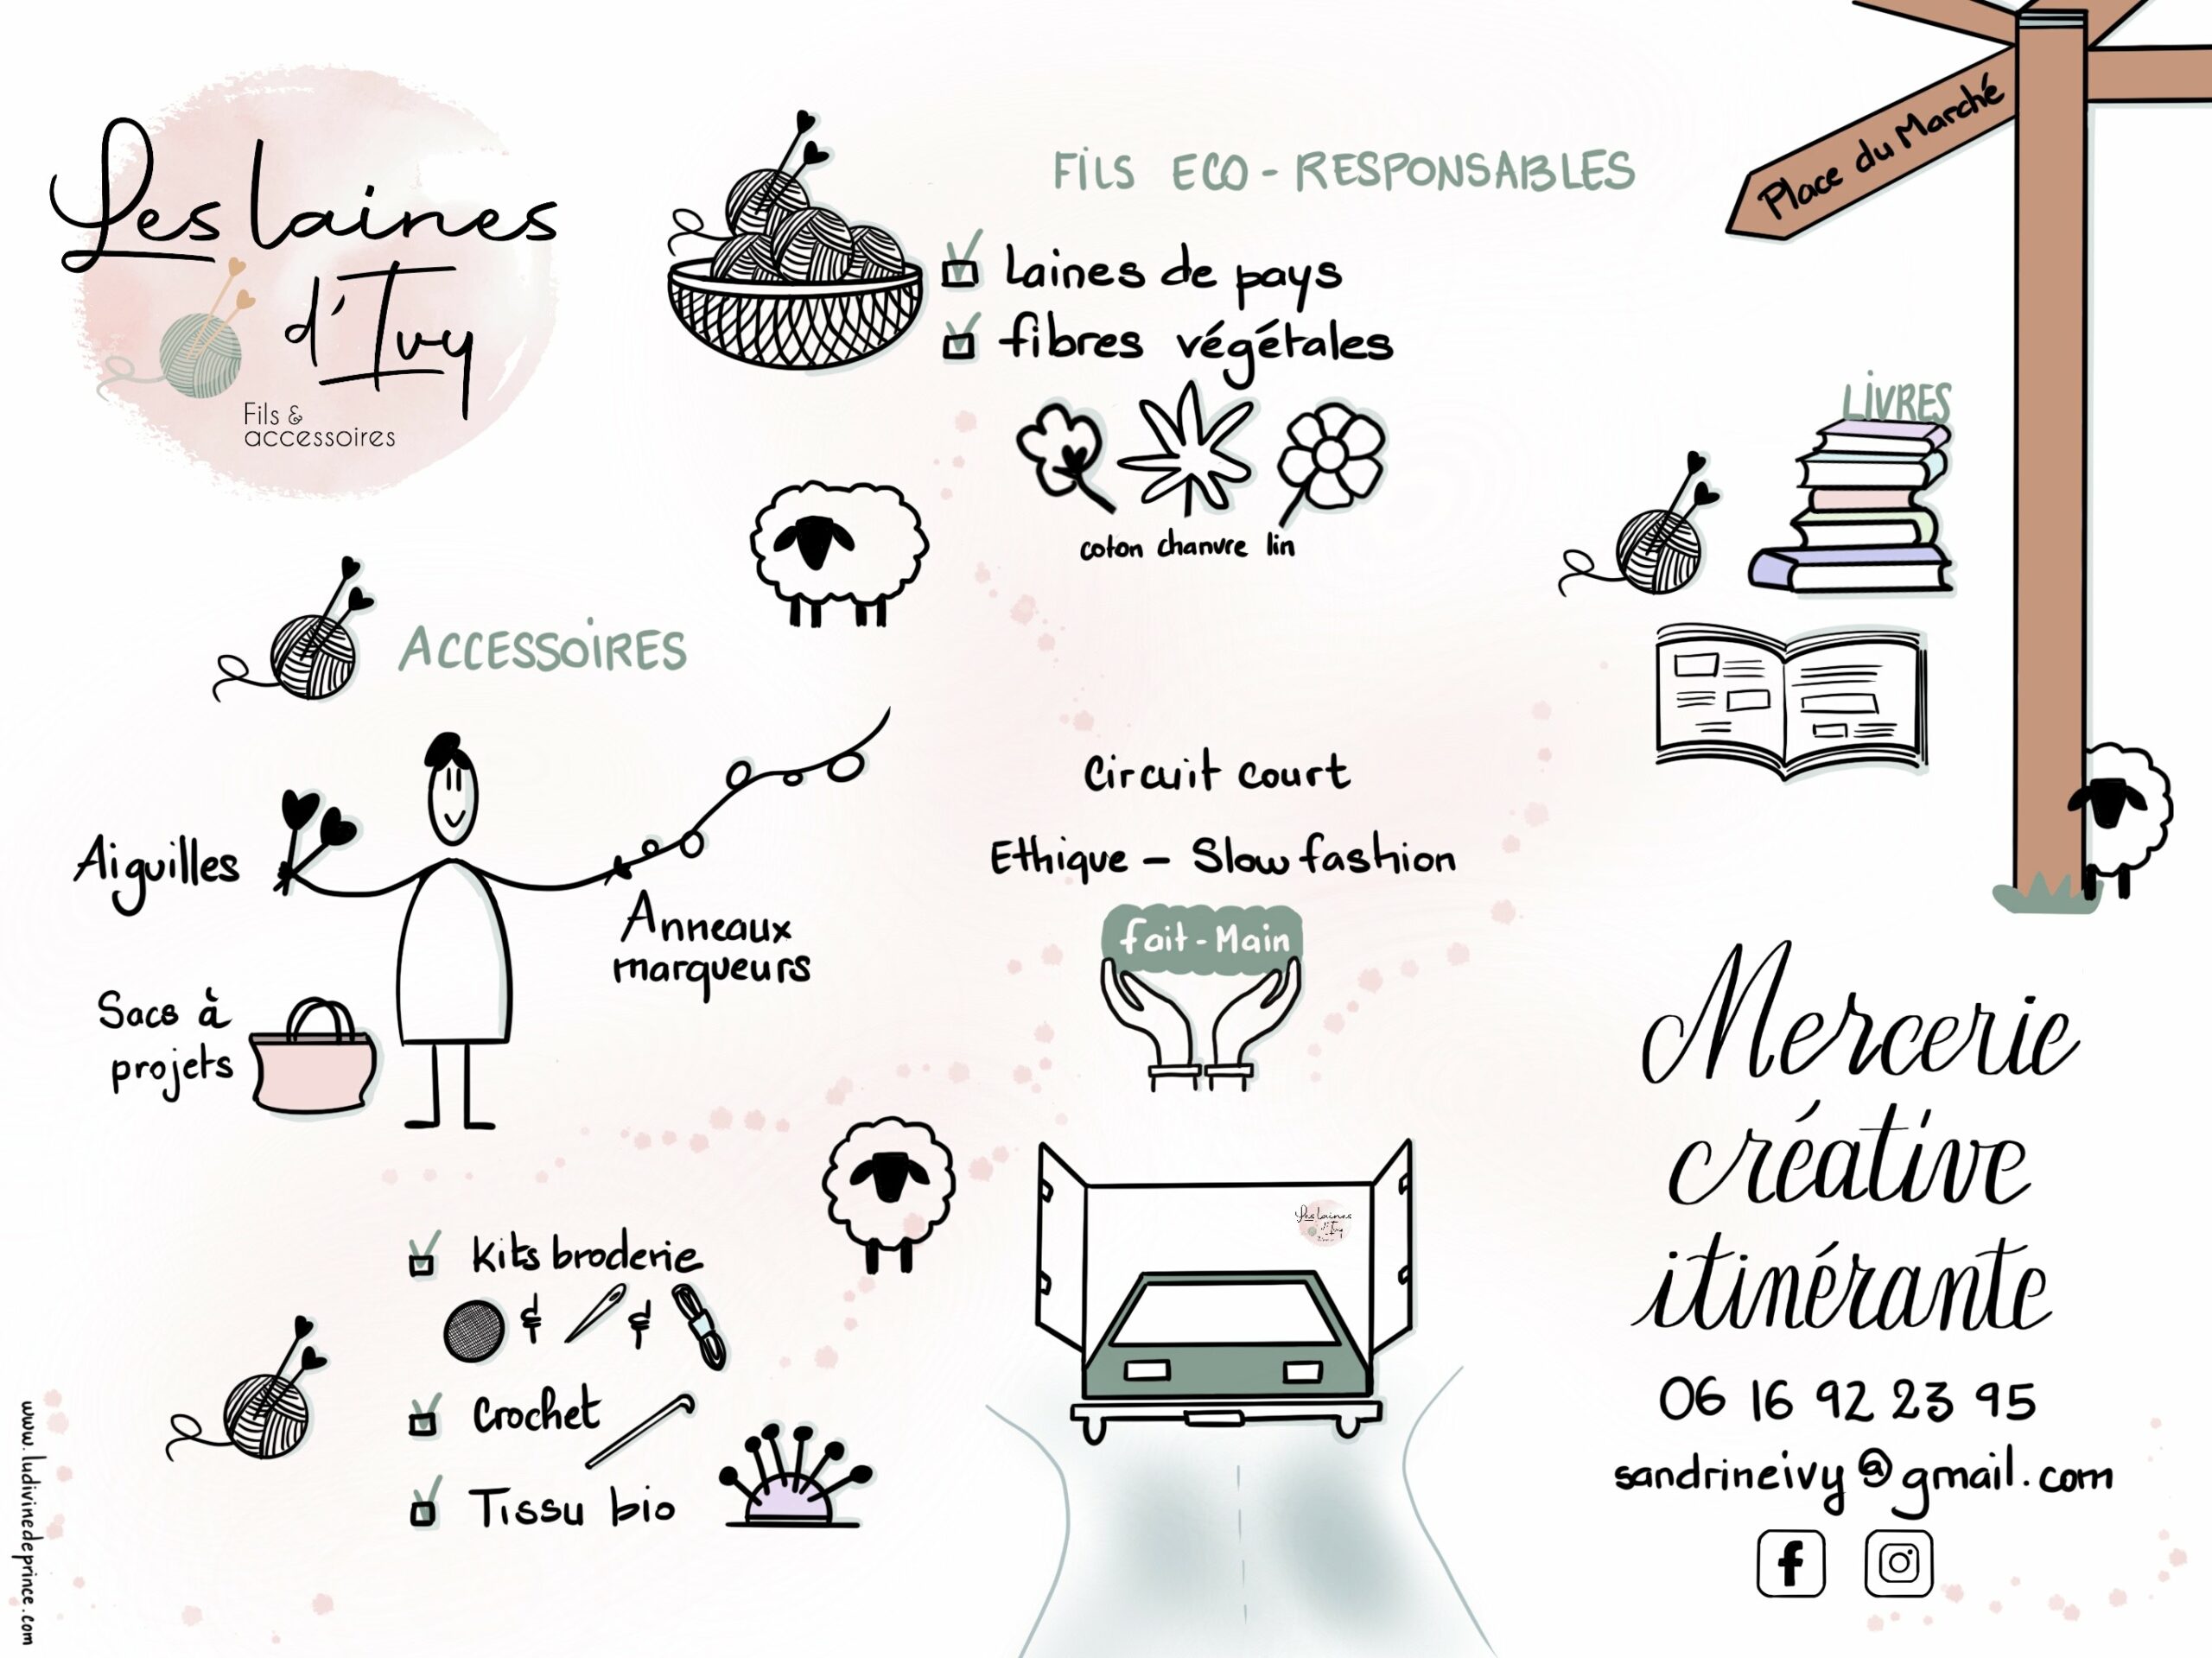 Les laines
d'Ivy
Fils &
accessoires
FILS ECO-RESPONSABLES
laines de pays
fibres végétales
coton chanvre lin
Place du Marché
LIVRES
ACCESSOIRES
Aiguilles
Anneaux
marqueurs
Sacs à
projets
Circuit court
Ethique - Slow fashion
fait-Main
kits broderie
& &
Crochet
Tissu bio
Les laines
d'Ivy
Mercerie
créative
itinérante
06 16 92 23 95
sandrineivy@gmail.com
www.ludivinedeprince.com